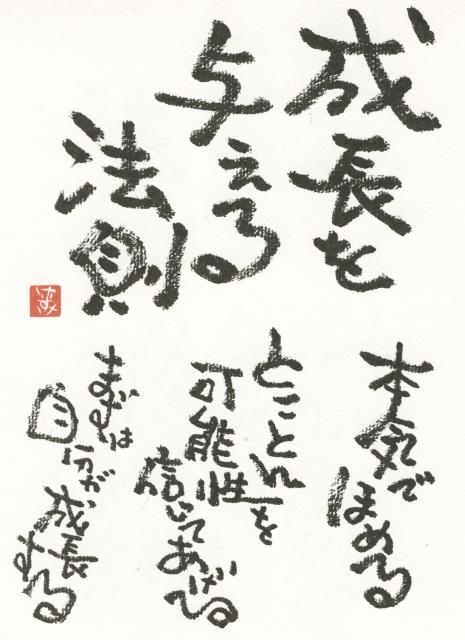 成長を
与える
法則
本気で
ほめる
とことん
可能性を
信じてあげる
まずは
自分が
成長
する